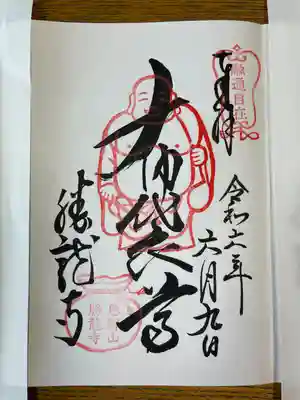 奉拝
融通自在
令和六年
六月九日
大布袋尊
勝龍寺
恵解山
勝龍寺